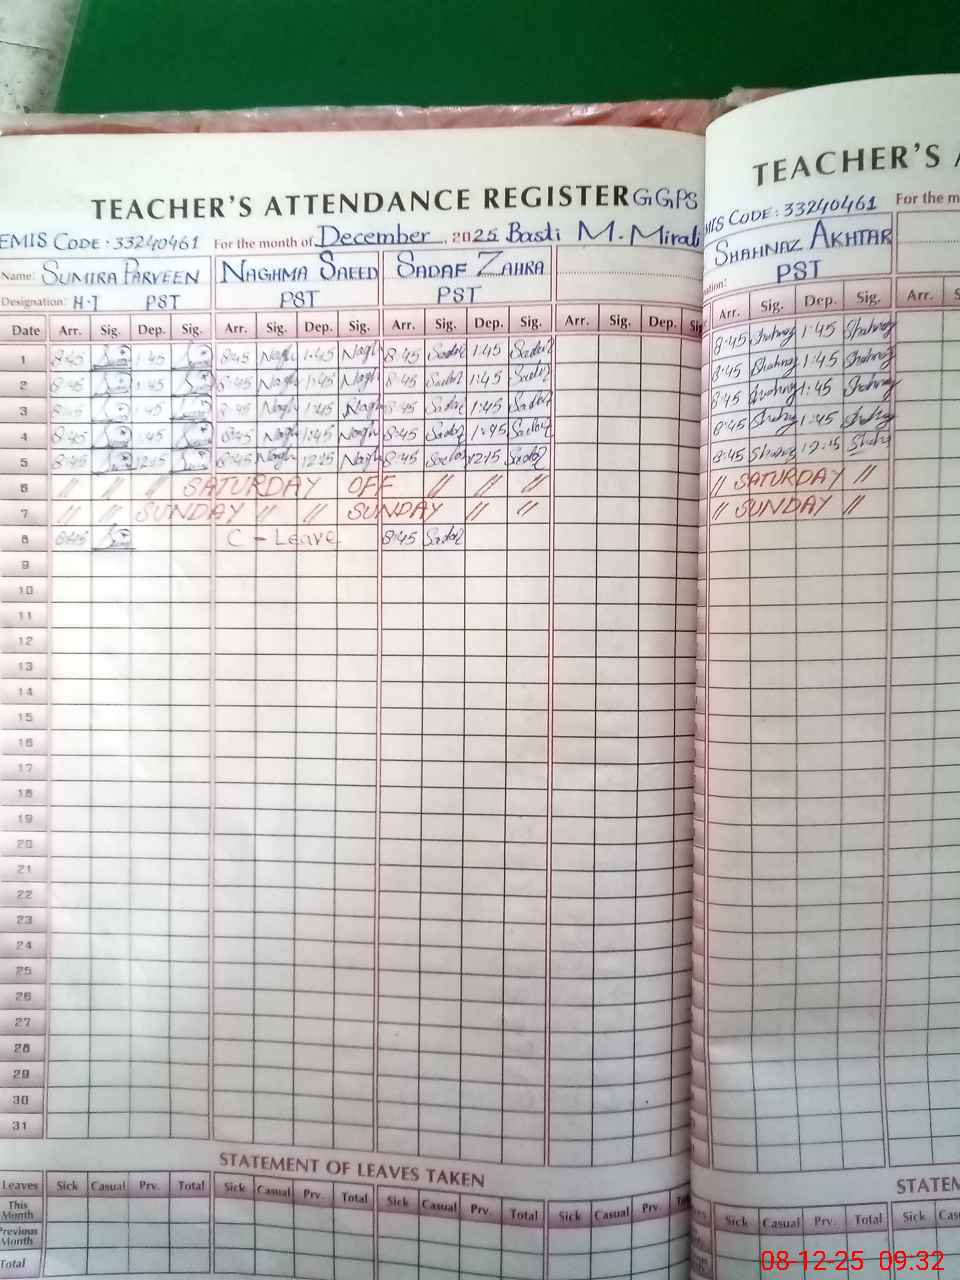 TEACHER'S ATTENDANCE REGISTER GGPS
EMIS CODE: 33240461 For the month of December 2025 Basti M. Mirali
Name: SUMIRA PARVEEN NAGHMA SAEED SADAF ZAHRA
Designation: H.T PST PST PST
Date Arr. Sig. Dep. Sig. Arr. Sig. Dep. Sig. Arr. Sig. Dep. Sig. Arr. Sig. Dep. Si
1 8:45 1:45 8:45 Nagh 1:45 Nagh 8:45 Sadaf 1:45 Sadaf
2 8:45 1:45 8:45 Nagh 1:45 Nagh 8:45 Sadaf 1:45 Sadaf
3 8:45 1:45 8:45 Nagh 1:45 Nagh 8:45 Sadaf 1:45 Sadaf
4 8:45 1:45 8:45 Nagh 1:45 Nagh 8:45 Sadaf 1:45 Sadaf
5 8:45 12:15 8:45 Nagh 12:15 Nagh 8:45 Sadaf 12:15 Sadaf
6 // // // SATURDAY OFF // // //
7 // // SUNDAY // // SUNDAY // //
8 8:45 C - Leave 8:45 Sadaf
9
10
11
12
13
14
15
16
17
18
19
20
21
22
23
24
25
26
27
28
29
30
31
STATEMENT OF LEAVES TAKEN
Leaves Sick Casual Prv. Total Sick Casual Prv. Total Sick Casual Prv. Total Sick Casual Prv.
This Month
Previous Month
Total
TEACHER'S A
MIS CODE: 33240461 For the m
SHAHNAZ AKHTAR
nation: PST
Arr. Sig. Dep. Sig. Arr. S
8:45 Shahnaz 1:45 Shahnaz
8:45 Shahnaz 1:45 Shahnaz
8:45 Shahnaz 1:45 Shahnaz
8:45 Shahnaz 1:45 Shahnaz
8:45 Shahnaz 12:15 Shahnaz
// SATURDAY //
// SUNDAY //
STATEM
Sick Casual Prv. Total Sick Cas
08-12-25 09:32